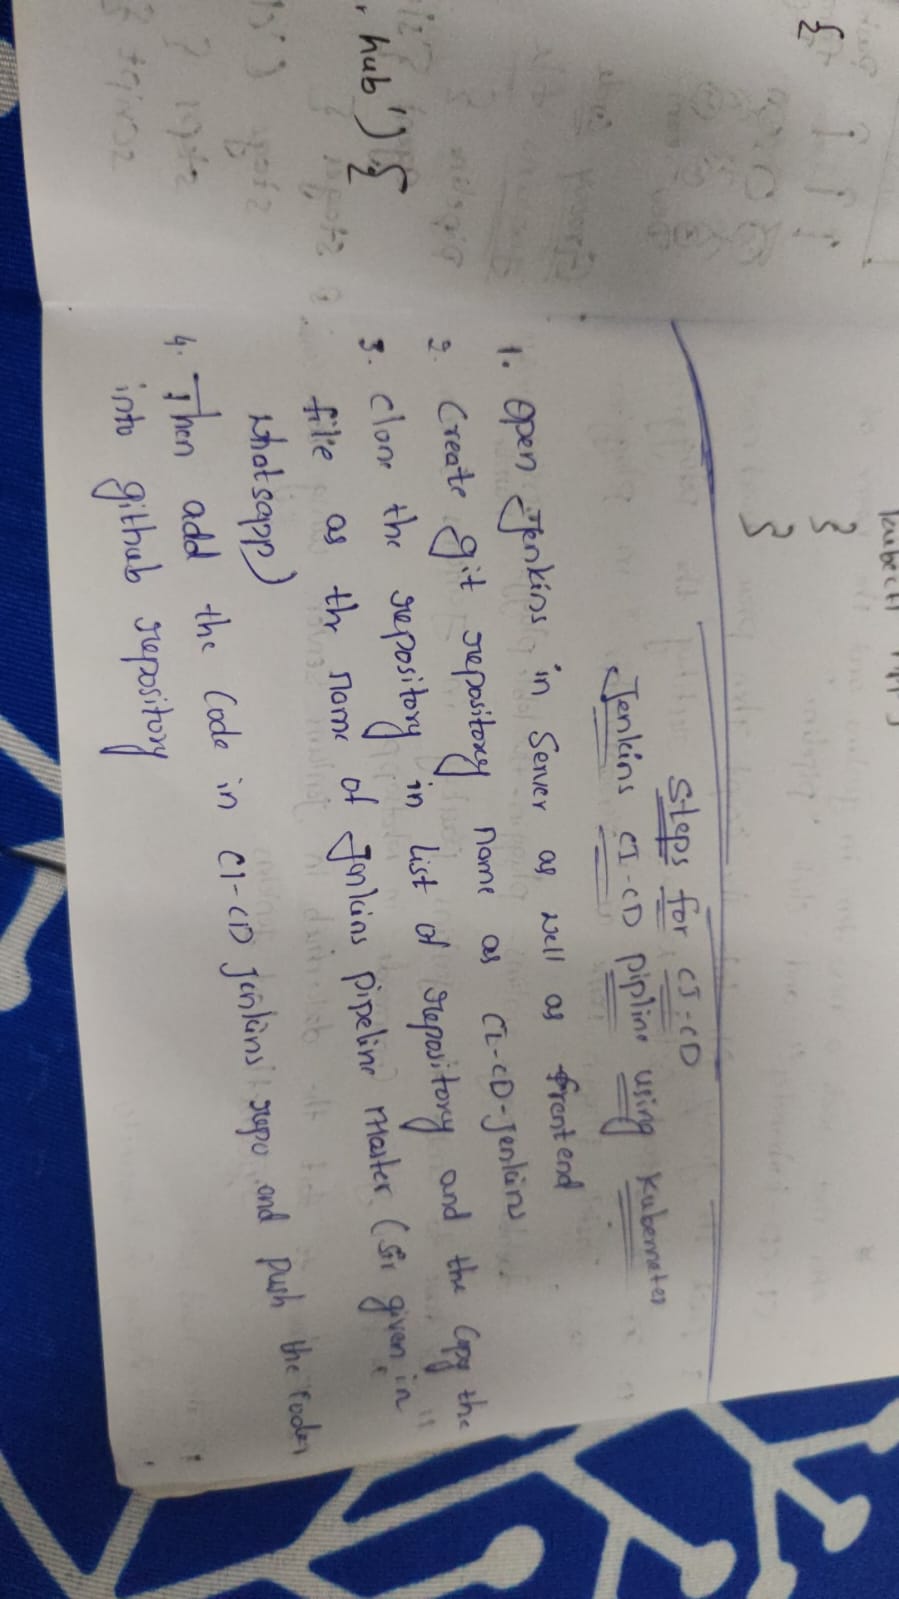 hub'){
}
}
}
Steps for CI-CD
Jenkins CI-CD pipline using Kubernetes
1. Open Jenkins in Server as well as frontend
2. Create git repository name as CI-CD-Jenkins
3. Clone the repository in list of repository and the Copy the
file as the name of Jenkins pipeline Master (Sir given in
whatsapp)
4. Then add the Code in CI-CD Jenkins repo and push the codes
into github repository